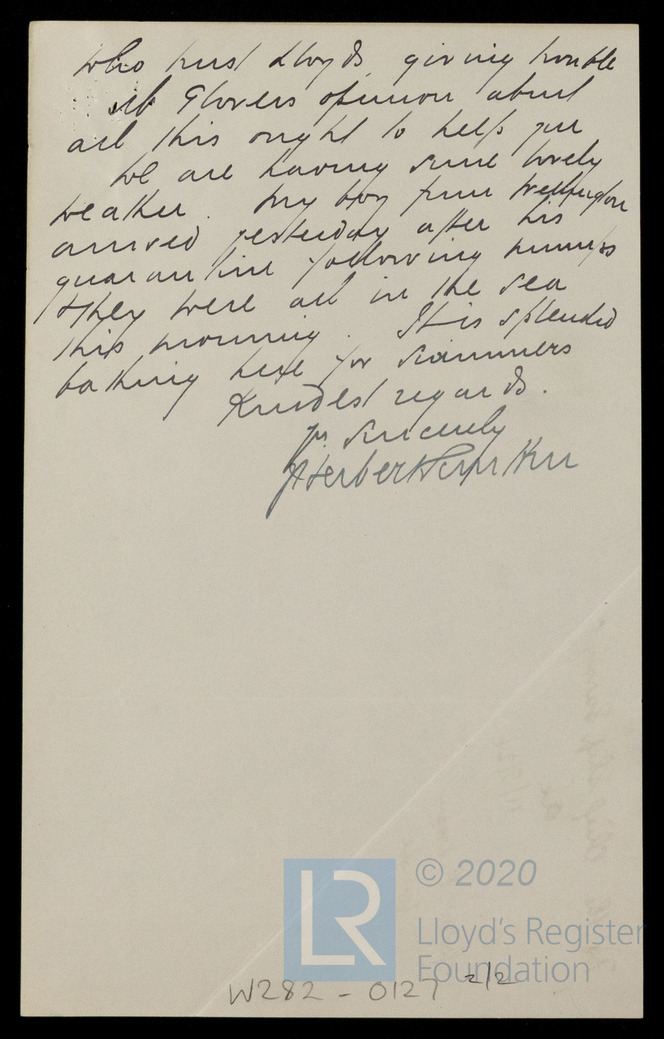 who trust Lloyds giving trouble
Mr Glovers opinion about
all this ought to help you
We are having some lovely
weather. My boy from Wellington
arrived yesterday after his
quarantine following mumps
& they were all in the sea
this morning. It is splendid
bathing here for swimmers
Kindest regards.
Yrs sincerely
Herbert
LR
© 2020
Lloyd's Register
Foundation
W282 - 0127 2/2